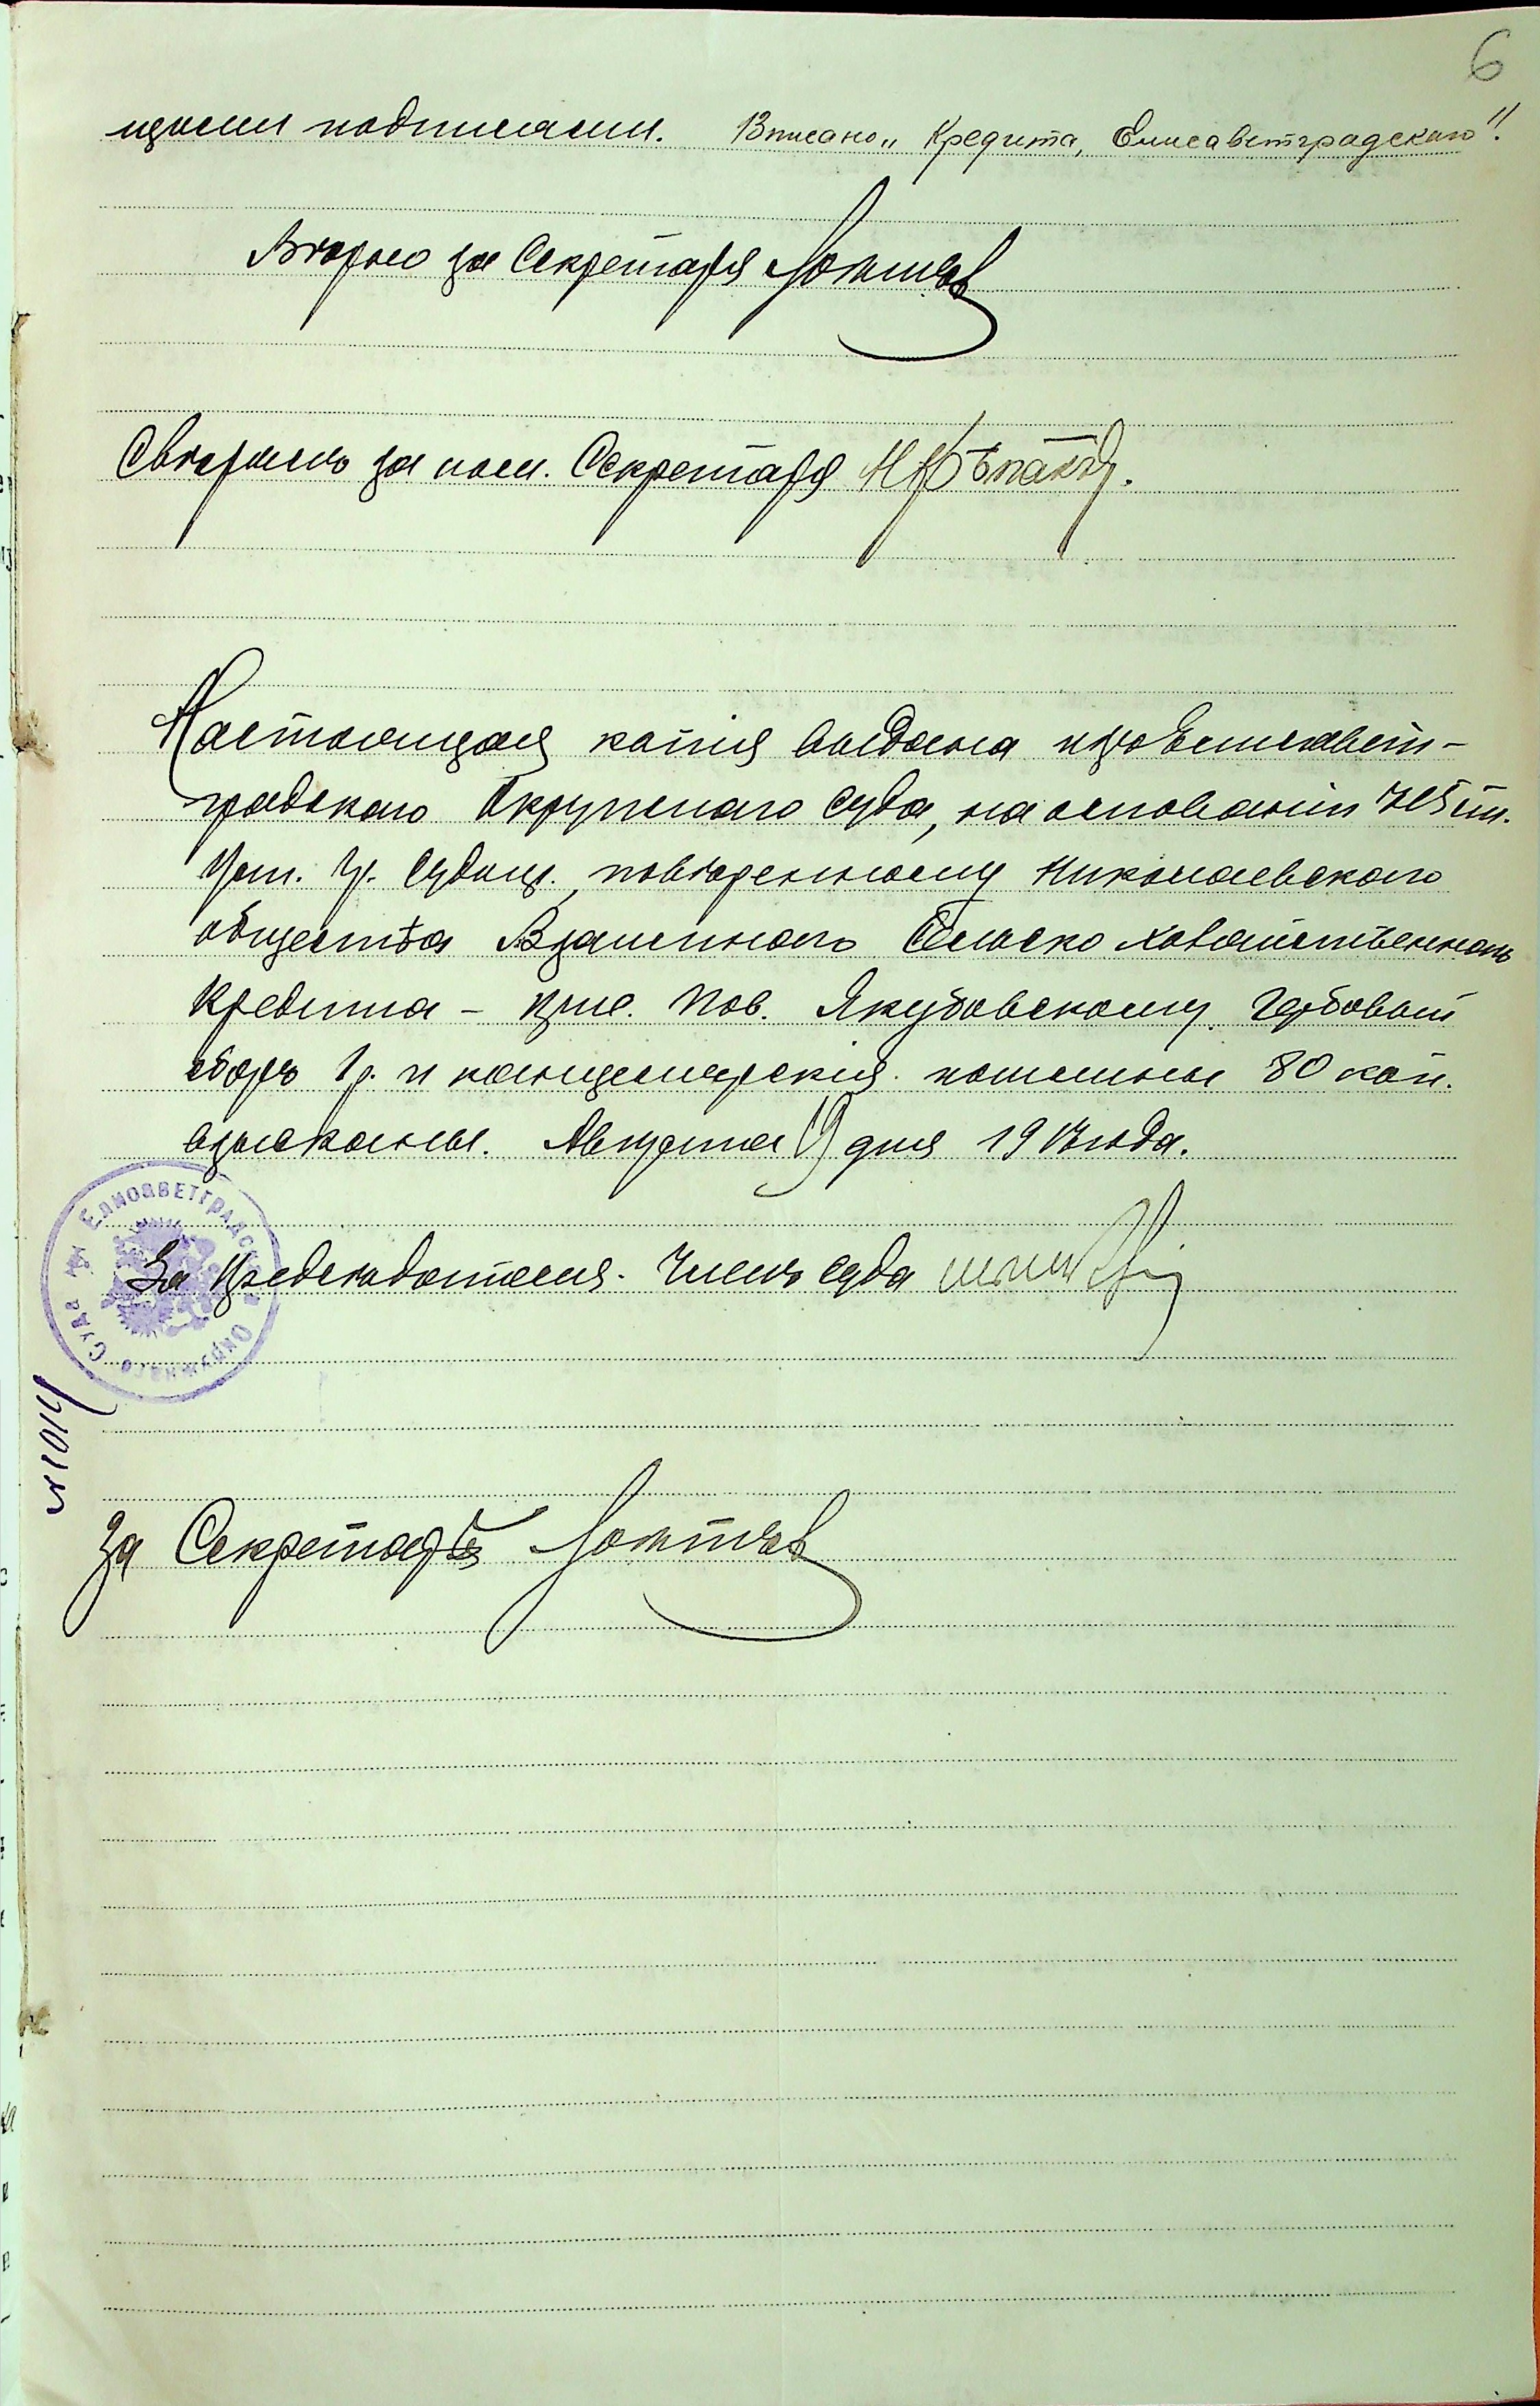 6
щими подписями. Вписано „Кредита, Елисаветградскаго".
Вѣрно за Секретаря
Свѣрялъ за пом. Секретаря
Настоящая копія выдана изъ Елисавет-
градскаго Окружнаго Суда, на основаніи ст.
Уст. Гр. Судопр., повѣренному Николаевскаго
общества Взаимнаго Сельско хозяйственнаго
Кредита – прис. пов. Якубовскому. Гербовый
сборъ 1 р. и канцелярскія пошлины 80 коп.
взысканы. Августа 19 дня 1913 года.
За Предсѣдателя. Членъ суда
Елисаветградскаго Окружнаго Суда
№ 1014
За Секретаря